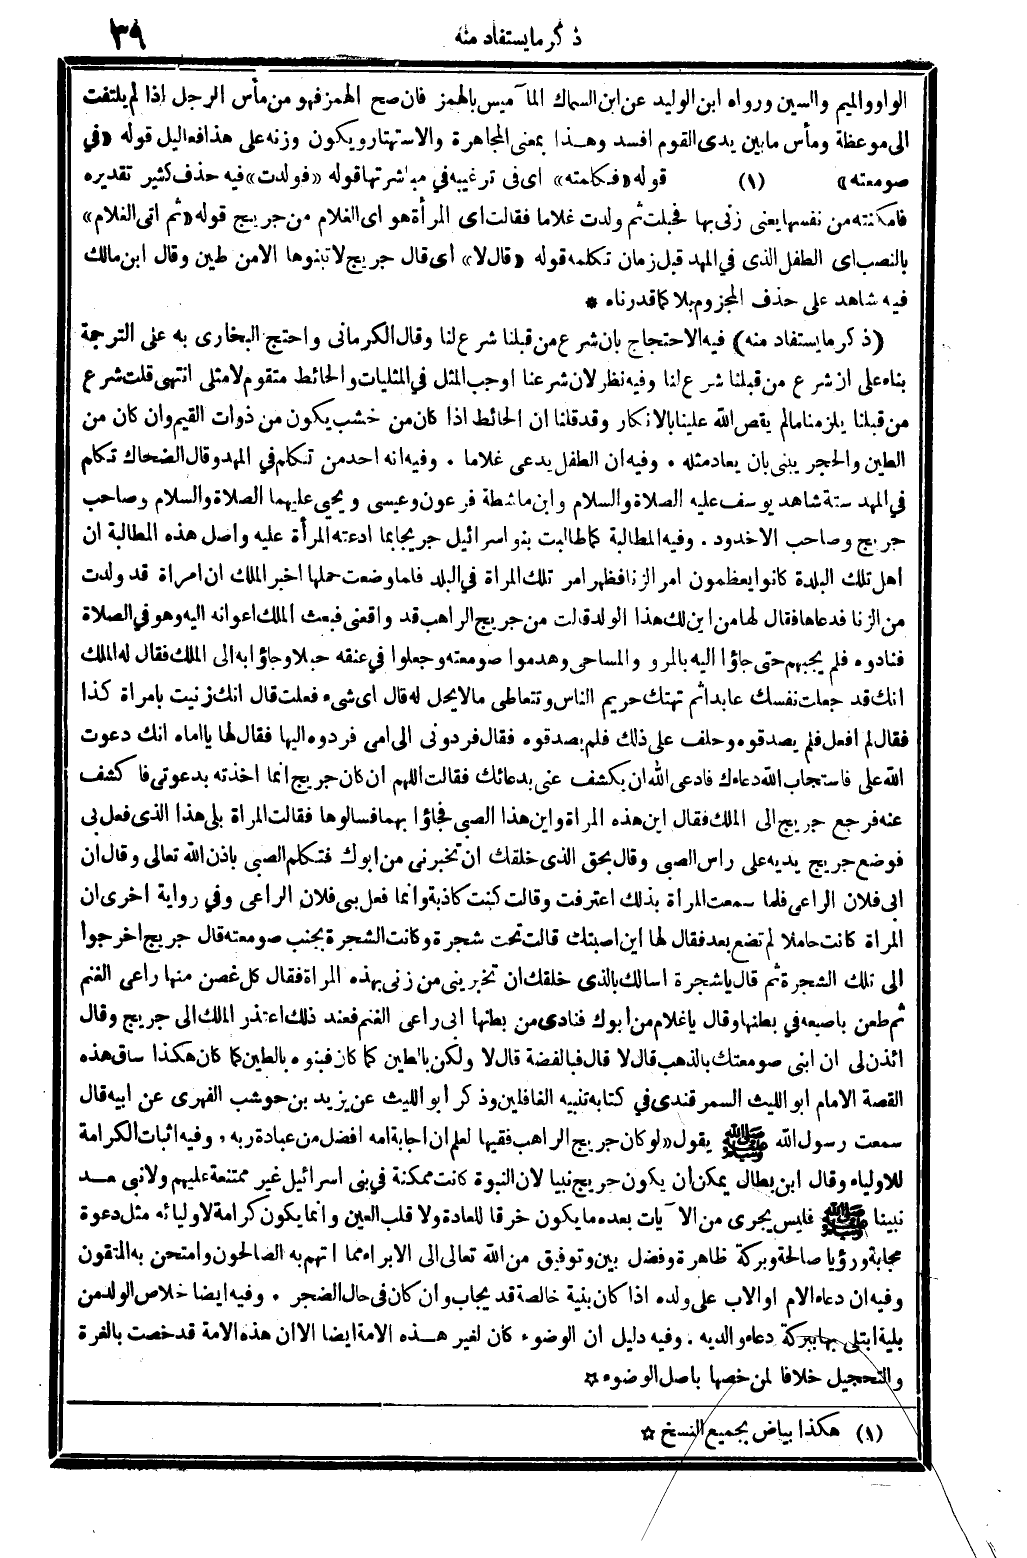 ذكر ما يستفاد منه ٣٩
الواو والميم والسين ورواه ابن الوليد عن ابن السماك المآميس بالهمز فان صح الهمز فهو من مأس الرجل إذا لم يلتفت
الى موعظة ومأس ما بين يدى القوم افسد وهذا بمعنى المجاهرة والاستهتار ويكون وزنه على هذا فعاليل قوله «في
صومعته» (١) قوله «فكلمته» اى فى ترغيبه في مباشرتها قوله «فولدت» فيه حذف كثير تقديره
فامكنته من نفسها يعنى زنى بها فحبلت ثم ولدت غلاما فقالت اى المرأة هو اى الغلام من جريج قوله «ثم اتى الغلام»
بالنصب اى الطفل الذى في المهد قبل زمان تكلمه قوله «قال لا» أى قال جريج لا تبنوها الا من طين وقال ابن مالك
فيه شاهد على حذف المجزوم بلا كما قدرناه *
(ذكر ما يستفاد منه) فيه الاحتجاج بان شرع من قبلنا شرع لنا وقال الكرمانى واحتج البخارى به على الترجمة
بناء على ان شرع من قبلنا شرع لنا وفيه نظر لان شرعنا اوجب المثل في المثليات والحائط متقوم لا مثلى انتهى قلت شرع
من قبلنا يلزمنا مالم يقص الله علينا بالانكار وقد قلنا ان الحائط اذا كان من خشب يكون من ذوات القيم وان كان من
الطين والحجر يبنى بان يعاد مثله . وفيه ان الطفل يدعى غلاما . وفيه انه احد من تكلم في المهد وقال الضحاك تكلم
في المهد ستة شاهد يوسف عليه الصلاة والسلام وابن ماشطة فرعون وعيسى ويحيى عليهما الصلاة والسلام وصاحب
جريج وصاحب الاخدود . وفيه المطالبة كما طالبت بنو اسرائيل جريجا بما ادعته المرأة عليه واصل هذه المطالبة ان
أهل تلك البلدة كانوا يعظمون امر الزنا فظهر امر تلك المراة في البلد فلما وضعت حملها اخبر الملك ان امراة قد ولدت
من الزنا فدعاها فقال لها من اين لك هذا الولد قالت من جريج الراهب قد واقعنى فبعث الملك اعوانه اليه وهو في الصلاة
فنادوه فلم يجبهم حتى جاؤا اليه بالمرو والمساحى وهدموا صومعته وجعلوا في عنقه حبلا وجاؤا به الى الملك فقال له الملك
انك قد جعلت نفسك عابدا ثم تهتك حريم الناس وتتعاطى مالا يحل له قال اى شىء فعلت قال انك زنيت بامراة كذا
فقال لم افعل فلم يصدقوه وحلف على ذلك فلم يصدقوه فقال فردونى الى امى فردوه اليها فقال لها يا اماه انك دعوت
الله على فاستجاب الله دعاءك فادعى الله ان يكشف عنى بدعائك فقالت اللهم ان كان جريج انما اخذته بدعوتى فاكشف
عنه فرجع جريج الى الملك فقال اين هذه المراة واين هذا الصبي فجاؤا بهما فسالوها فقالت المراة بلى هذا الذى فعل بى
فوضع جريج يديه على راس الصبي وقال بحق الذى خلقك ان تخبرنى من ابوك فتكلم الصبي باذن الله تعالى وقال ان
ابى فلان الراعى فلما سمعت المراة بذلك اعترفت وقالت كنت كاذبة وانما فعل بى فلان الراعى وفي رواية اخرى ان
المراة كانت حاملا لم تضع بعد فقال لها اين اصبتك قالت تحت شجرة وكانت الشجرة بجنب صومعته قال جريج اخرجوا
الى تلك الشجرة ثم قال يا شجرة اسالك بالذى خلقك ان تخبرينى من زنى بهذه المراة فقال كل غصن منها راعى الغنم
ثم طعن باصبعه في بطنها وقال يا غلام من أبوك فنادى من بطنها ابى راعى الغنم فعند ذلك اعتذر الملك الى جريج وقال
ائذن لى ان ابنى صومعتك بالذهب قال لا قال فبالفضة قال لا ولكن بالطين كما كان فبنوه بالطين كما كان هكذا ساق هذه
القصة الامام ابو الليث السمرقندى في كتابه تنبيه الغافلين وذكر أبو الليث عن يزيد بن حوشب الفهرى عن ابيه قال
سمعت رسول الله ﷺ يقول «لو كان جريج الراهب فقيها لعلم ان اجابة امه افضل من عبادة ربه . وفيه اثبات الكرامة
للاولياء وقال ابن بطال يمكن أن يكون جريج نبيا لان النبوة كانت ممكنة في بنى اسرائيل غير ممتنعة عليهم ولا نبى بعد
نبينا ﷺ فليس يجرى من الآيات بعده ما يكون خرقا للعادة ولا قلب العين وانما يكون كرامة لاوليائه مثل دعوة
مجابة ورؤيا صالحة وبركة ظاهرة وفضل بين وتوفيق من الله تعالى الى الابراء مما اتهم به الصالحون وامتحن به المتقون
وفيه ان دعاء الام او الاب على ولده اذا كان بنية خالصة قد يجاب وان كان في حال الضجر . وفيه ايضا خلاص الولد من
بلية ابتلى بها ببركة دعاء والديه . وفيه دليل ان الوضوء كان لغير هذه الامة ايضا الا ان هذه الامة قد خصت بالغرة
والتحجيل خلافا لمن خصها باصل الوضوء ☆
(١) هكذا بياض بجميع النسخ ☆